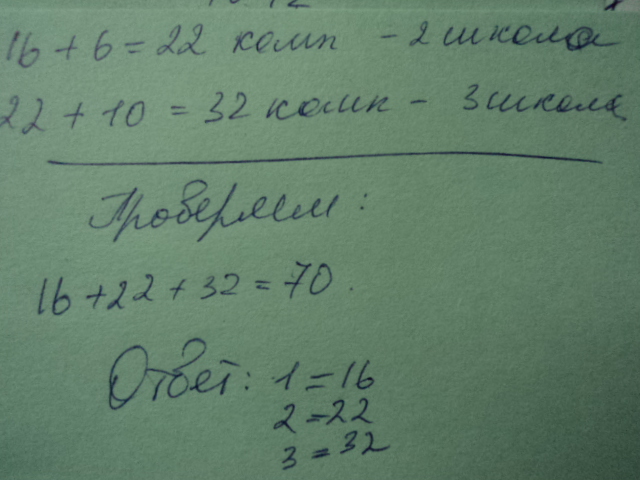 16 + 6 = 22 комп - 2 школа
22 + 10 = 32 комп - 3 школа
Проверяем:
16 + 22 + 32 = 70.
Ответ: 1 = 16
2 = 22
3 = 32